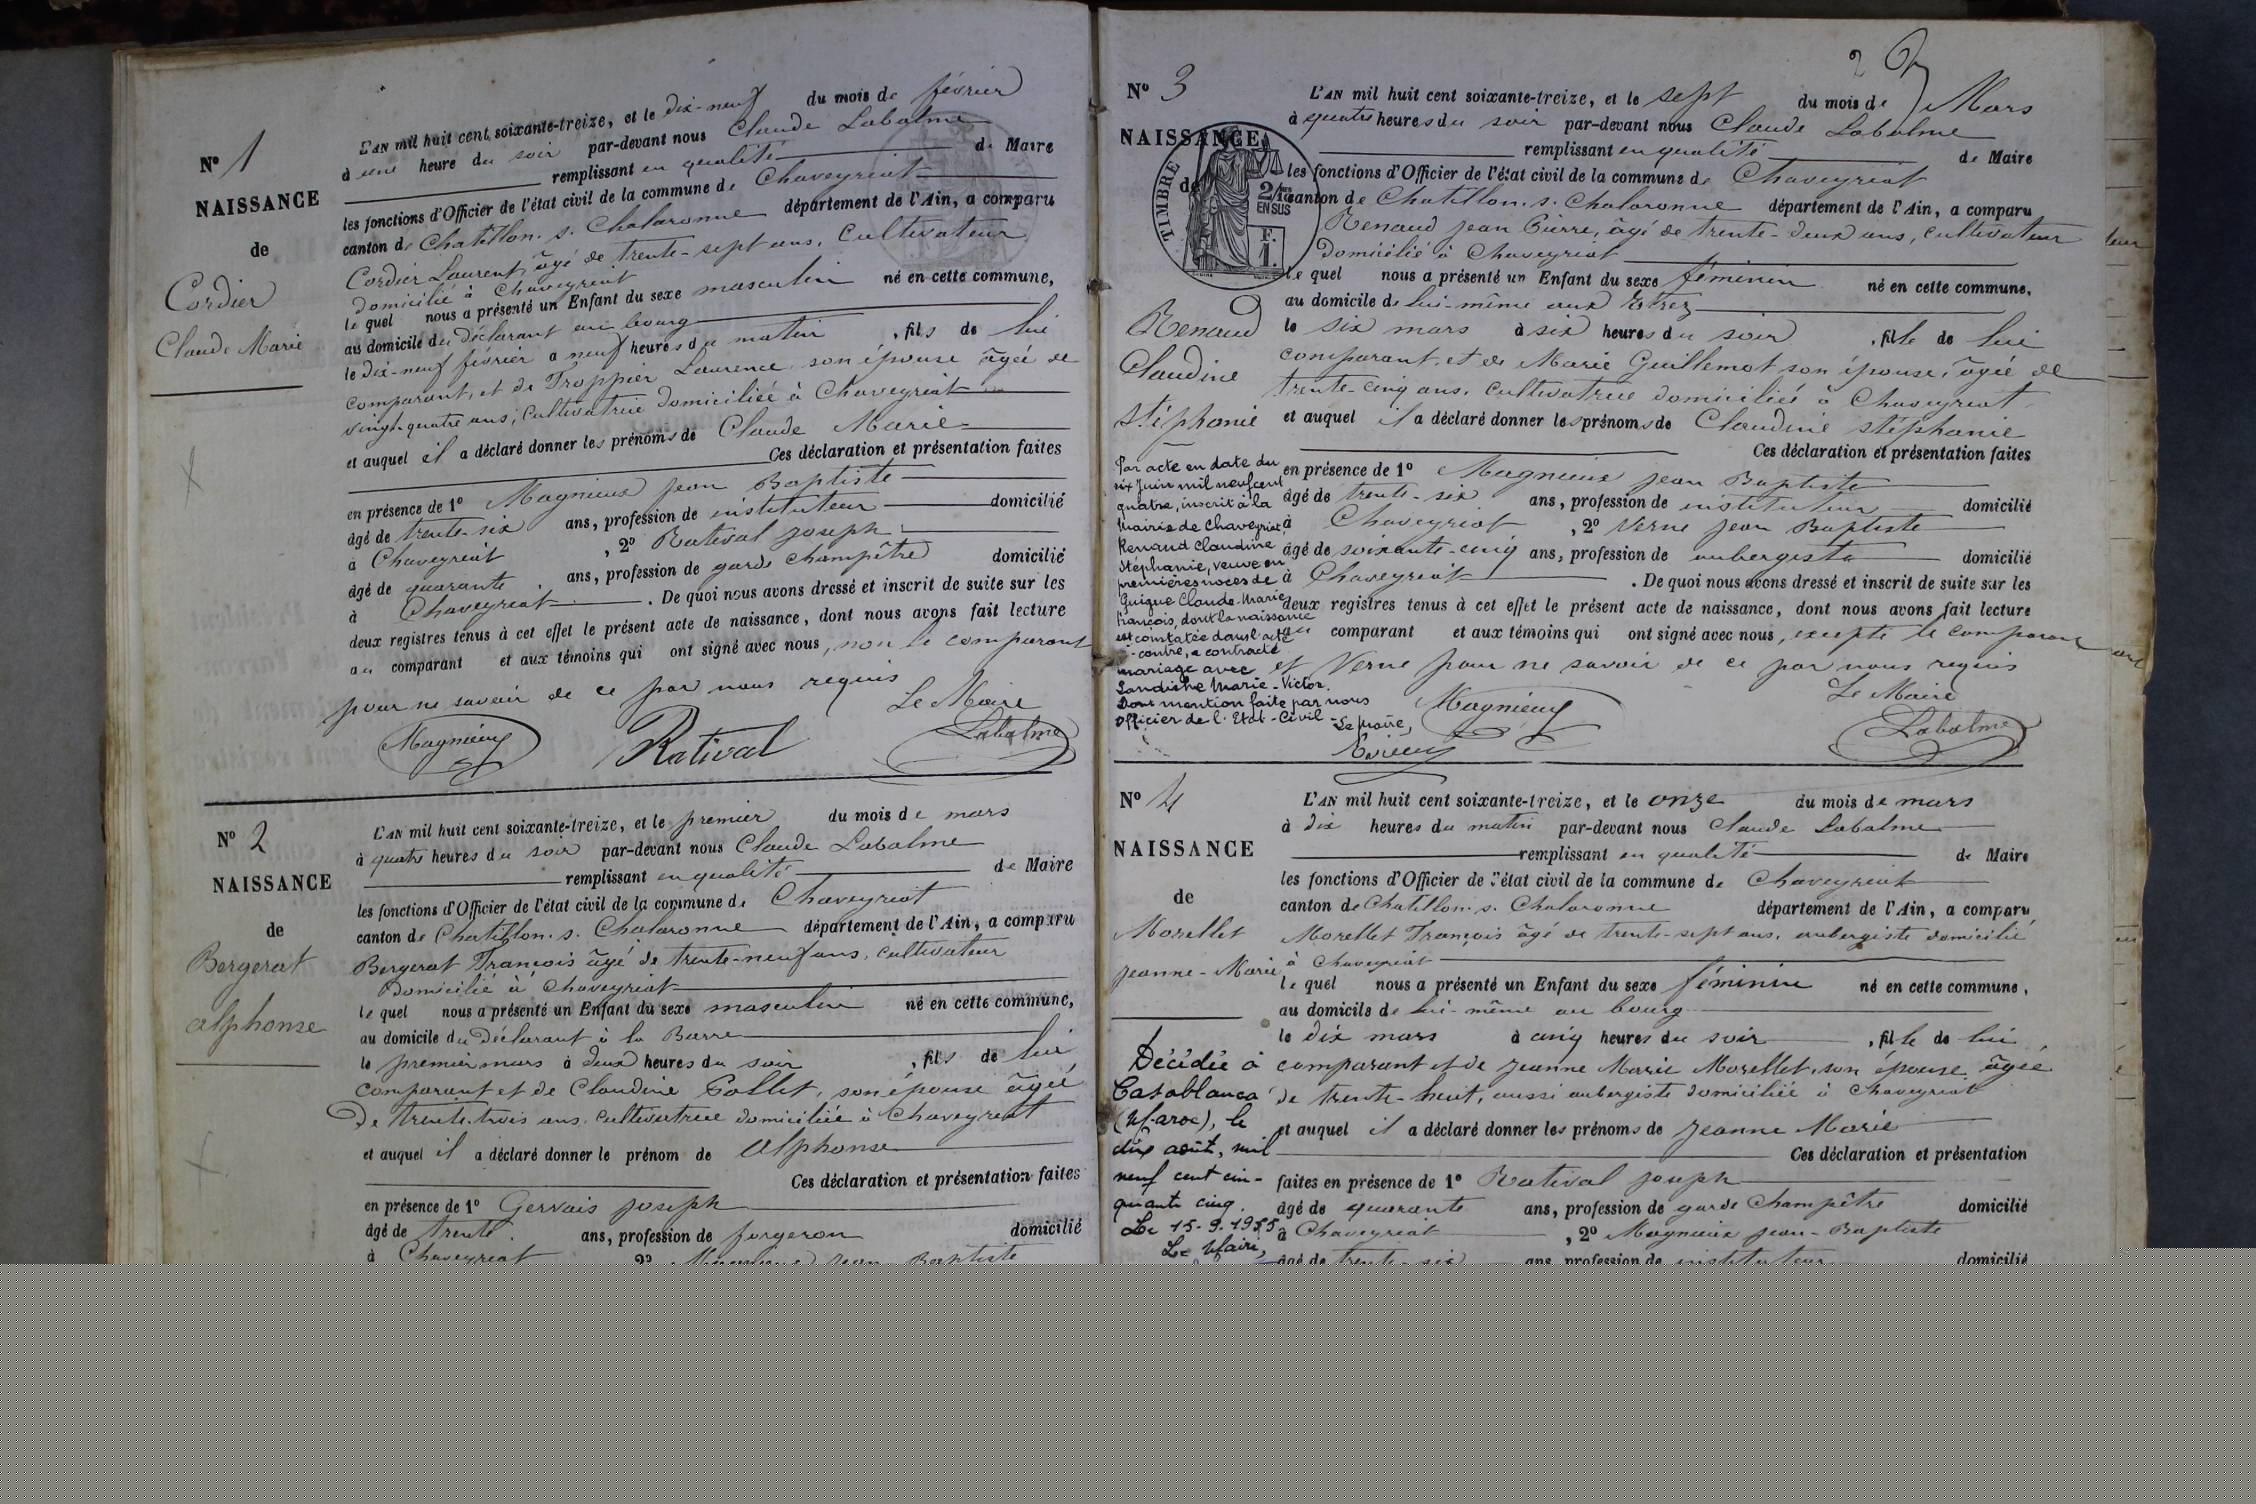 N° 1
NAISSANCE
de
Cordier
Claude Marie
L'AN mil huit cent soixante-treize, et le dix-neuf du mois de février
à une heure du soir par-devant nous Claude Labalme
remplissant en qualité de Maire
les fonctions d'Officier de l'état civil de la commune de Chaveyriat
canton de Chatillon. s. Chalaronne département de l'Ain, a comparu
Cordier Laurent, âgé de trente-sept ans, cultivateur
domicilié à Chaveyriat
le quel nous a présenté un Enfant du sexe masculin né en cette commune,
au domicile du déclarant au bourg
le dix-neuf février à neuf heures du matin, fils de lui
comparant, et de Troppier Laurence son épouse âgée de
vingt-quatre ans, cultivatrice domiciliée à Chaveyriat
et auquel il a déclaré donner les prénoms de Claude Marie
Ces déclaration et présentation faites
en présence de 1° Magnieux jean Baptiste
âgé de trente-six ans, profession de instituteur domicilié
à Chaveyriat, 2° Ratival joseph
âgé de quarante ans, profession de garde champêtre domicilié
à Chaveyriat. De quoi nous avons dressé et inscrit de suite sur les
deux registres tenus à cet effet le présent acte de naissance, dont nous avons fait lecture
au comparant et aux témoins qui ont signé avec nous, non le comparant
pour ne savoir de ce par nous requis
Le Maire
Magnieux Ratival Labalme
N° 2
NAISSANCE
de
Bergerat
alphonse
L'AN mil huit cent soixante-treize, et le premier du mois de mars
à quatre heures du soir par-devant nous Claude Labalme
remplissant en qualité de Maire
les fonctions d'Officier de l'état civil de la commune de Chaveyriat
canton de Chatillon. s. Chalaronne département de l'Ain, a comparu
Bergerat François âgé de trente-neuf ans, cultivateur
domicilié à Chaveyriat
le quel nous a présenté un Enfant du sexe masculin né en cette commune,
au domicile du déclarant à la Barre
le premier mars à deux heures du soir, fils de lui
comparant et de Claudine Gollet, son épouse âgée
De trente-trois ans, cultivatrice domiciliée à Chaveyriat
et auquel il a déclaré donner le prénom de alphonse
Ces déclaration et présentation faites
en présence de 1° Gervais joseph
âgé de trente ans, profession de forgeron domicilié
à Chaveyriat 2° Magnieux jean-Baptiste
2
N° 3
NAISSANCE
de
TIMBRE
2/10es
EN SUS
F.
1.
Renaud
Claudine
stéphanie
L'AN mil huit cent soixante-treize, et le sept du mois de Mars
à quatre heures du soir par-devant nous Claude Labalme
remplissant en qualité de Maire
les fonctions d'Officier de l'état civil de la commune de Chaveyriat
canton de Chatillon. s. Chalaronne département de l'Ain, a comparu
Renaud jean Pierre, âgé de trente-deux ans, cultivateur
domicilié à Chaveyriat
le quel nous a présenté un Enfant du sexe féminin né en cette commune,
au domicile de lui-même aux Estrez
le six mars à six heures du soir, fille de lui
comparant, et de Marie Guillemot son épouse, âgée de
trente-cinq ans, cultivatrice domiciliée à Chaveyriat
et auquel il a déclaré donner les prénoms de Claudine stéphanie
Ces déclaration et présentation faites
en présence de 1° Magnieux jean Baptiste
âgé de trente-six ans, profession de instituteur domicilié
à Chaveyriat, 2° Verne jean Baptiste
âgé de soixante-cinq ans, profession de aubergiste domicilié
à Chaveyriat. De quoi nous avons dressé et inscrit de suite sur les
deux registres tenus à cet effet le présent acte de naissance, dont nous avons fait lecture
au comparant et aux témoins qui ont signé avec nous, excepté le comparant
et Verne pour ne savoir de ce par nous requis
Le Maire
Magnieux Labalme
Par acte en date du
six Juin mil neuf cent
quatre, inscrit à la
Mairie de Chaveyriat,
Renaud Claudine
Stéphanie, veuve en
premières noces de
Guigue Claude-Marie
François, dont la naissance
est constatée dans l'acte
ci-contre, a contracté
mariage avec
Marie-Victor.
Dont mention faite par nous
Officier de l'Etat-Civil - Le Maire,
N° 4
NAISSANCE
de
Morellet
jeanne-Marie
L'AN mil huit cent soixante-treize, et le onze du mois de mars
à dix heures du matin par-devant nous Claude Labalme
remplissant en qualité de Maire
les fonctions d'Officier de l'état civil de la commune de Chaveyriat
canton de Chatillon. s. Chalaronne département de l'Ain, a comparu
Morellet François âgé de trente-sept ans, aubergiste domicilié
à Chaveyriat
le quel nous a présenté un Enfant du sexe féminin né en cette commune,
au domicile de lui-même au bourg
le dix mars à cinq heures du soir, fille de lui
comparant et de jeanne Marie Morellet, son épouse âgée
de trente-huit, aussi aubergiste domiciliée à Chaveyriat
et auquel il a déclaré donner les prénoms de jeanne Marie
Ces déclaration et présentation
faites en présence de 1° Ratival joseph
âgé de quarante ans, profession de garde champêtre domicilié
à Chaveyriat, 2° Magnieux jean-Baptiste
âgé de trente-six ans, profession de instituteur domicilié
Décédée à
Casablanca
(Maroc), le
dix août, mil
neuf cent cin-
quante cinq.
Le 15-9-1955
Le Maire,